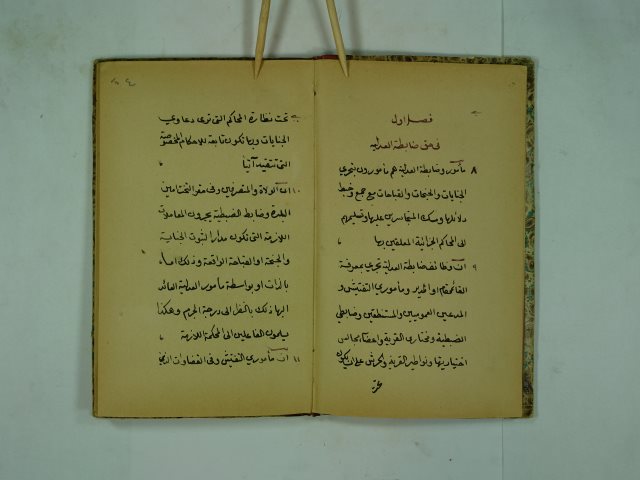 فصل اول
فى حق ضابطة العدلية
٨ مأمورو ضابطة العدلية هم مأمورون بتحري
الجنايات والجنحات والقباحات مع جمع وضبط
دلائلها ومسك المتجاسرين عليها وتسليمهم
الى المحاكم الجزائية المتعلقين بها
٩ ان وظائف ضابطة العدلية تجري بمعرفة
القائمقام او المدير ومأموري التفتيش و
المدعين العموميين والمستنطقين وضابطي
الضبطية ومختاري القرية واعضاء مجالس
اختياريتها ونواطير القرية والحرش على ان يكون
تحت نظارة المحاكم التى ترى دعاوي
الجنايات وبها تكون تابعة للاحكام المخصوصة
التى ستفيد آتياً
١٠ ان الولاة والمتصرفين وفى مقر التختامين
البلدة وضابط الضبطية يجرون المعاملات
اللازمة التى تكون مدارا لثبوت الجناية
والجنحة او القباحة الواقعة وذلك اما
بالذات او بواسطة مأمور العدلية العائد
اليها ذلك بالنظر الى درجة الجرم وهكذا
يسلمون الفاعلين الى المحكمة اللازمة
١١ ان مأموري التفتيش وفى القضاوات